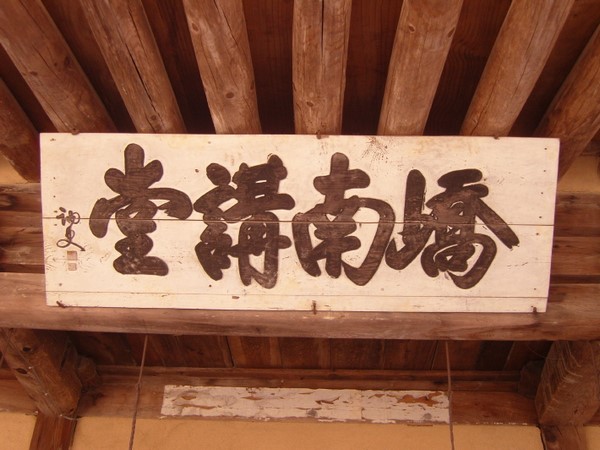 嶠南講堂